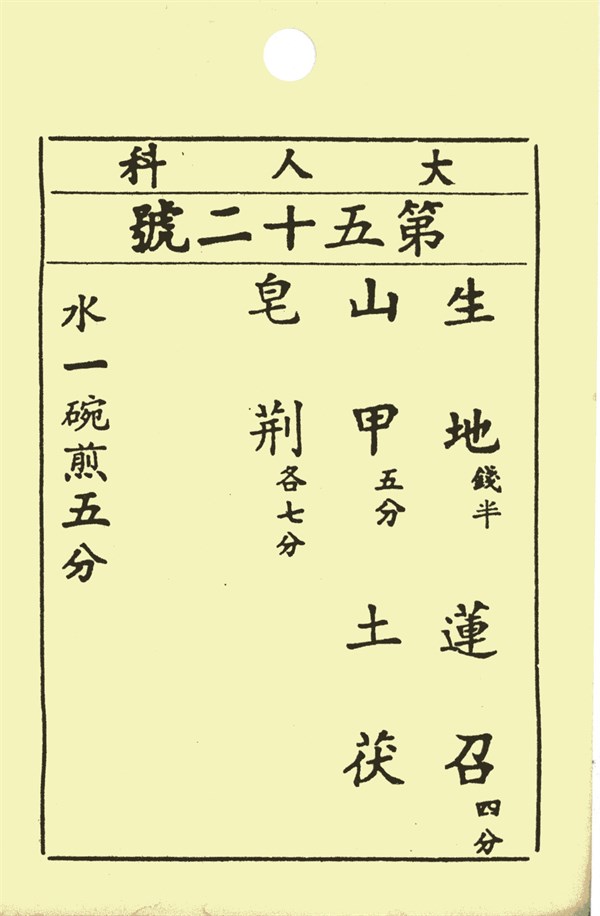 大人科
第五十二號
生地錢半 蓮召四分
山甲五分 土茯
皂荆各七分
水一碗煎五分